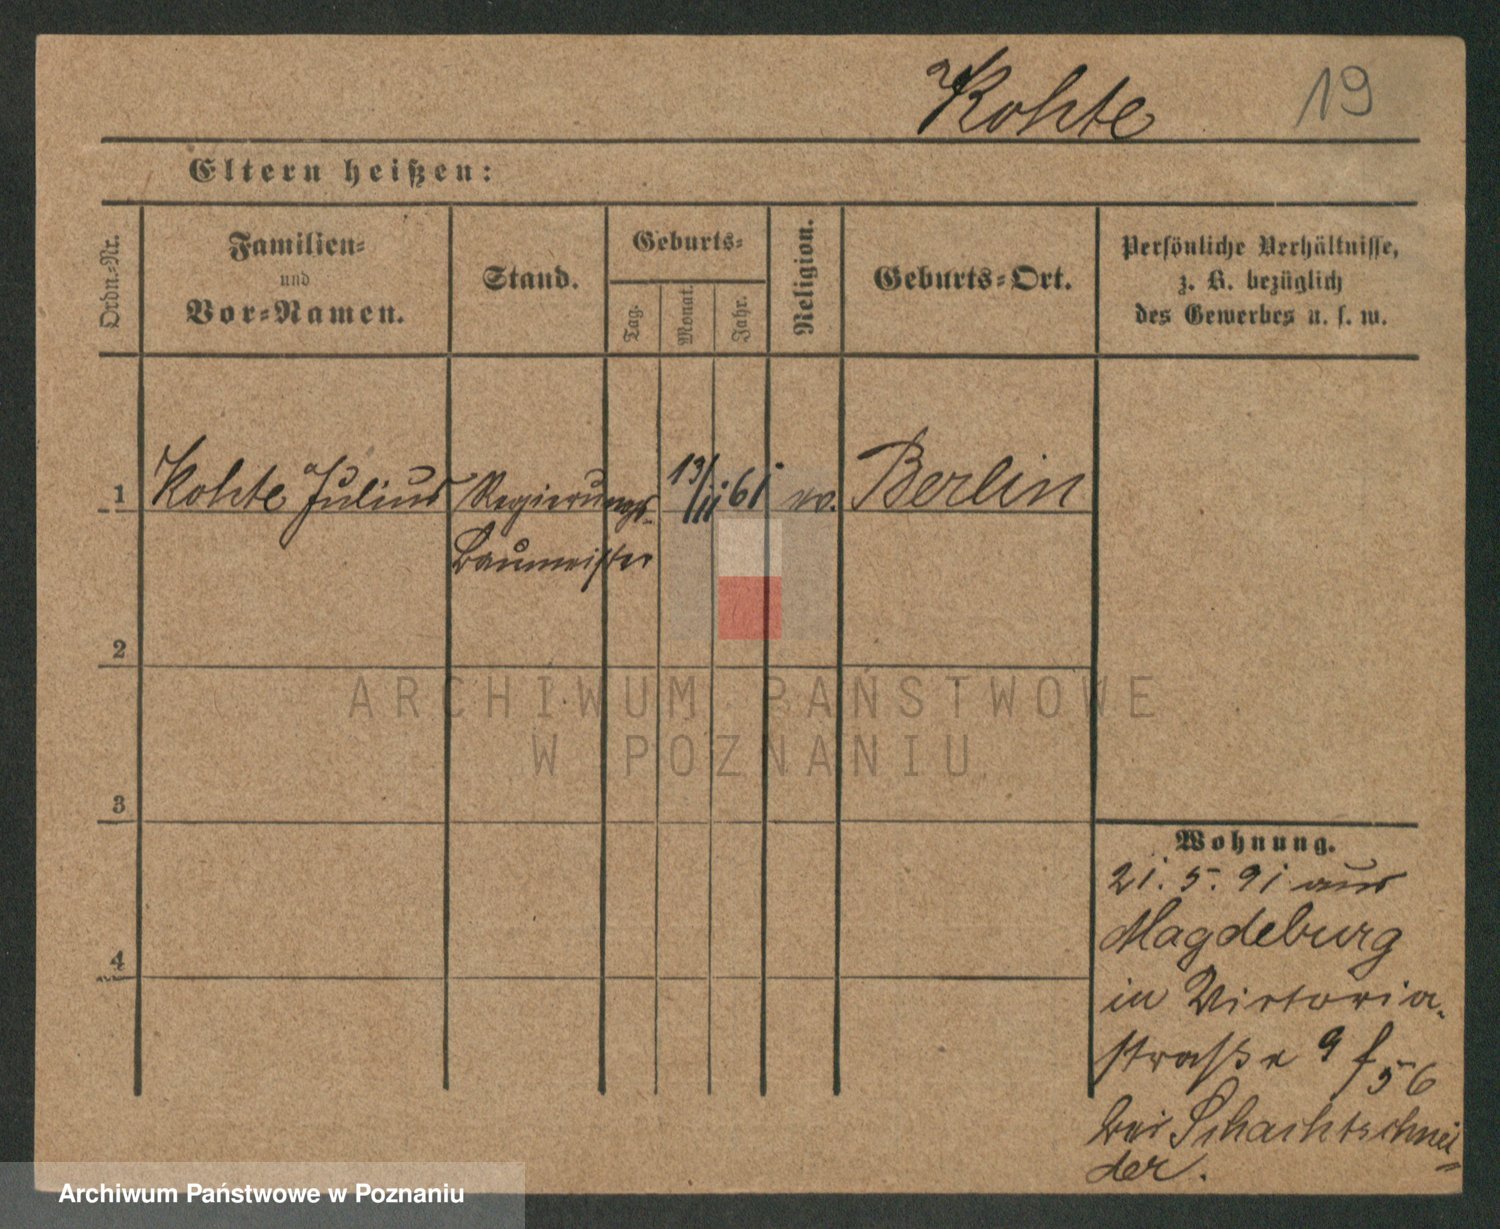 Kohte 19
Eltern heißen:
Ordn.-Nr.
Familien-
und
Vor-Namen.
Stand.
Geburts-
Tag.
Monat.
Jahr.
Religion.
Geburts-Ort.
Persönliche Verhältnisse,
z. B. bezüglich
des Gewerbes u. s. w.
1 Kohte Julius Regierungs- 13/11 61 ev. Berlin
Baumeister
2
3
4
Wohnung.
21. 5. 91 aus
Magdeburg
in Victoria-
straße 9 f 56
bei Schachtschnei-
der.
ARCHIWUM PAŃSTWOWE
W POZNANIU
Archiwum Państwowe w Poznaniu